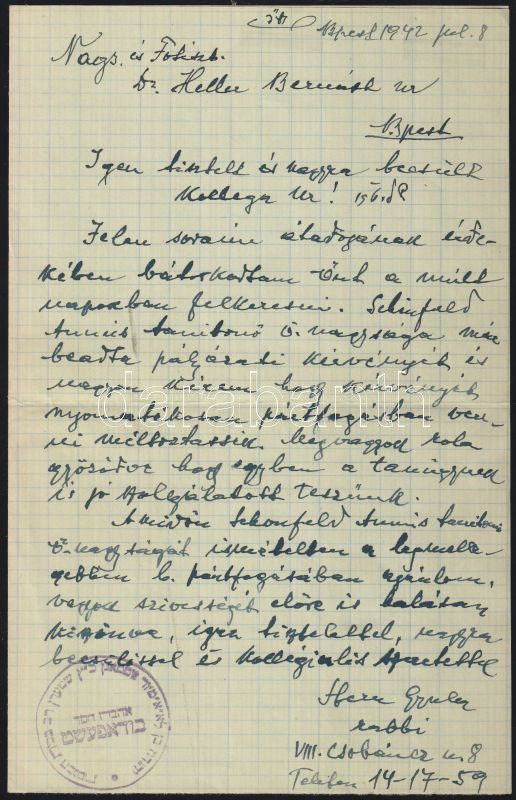 בס"ד
Bpest 1942 jul. 8
Nags. és Főtiszt.
Dr. Heller Bernáth Ur
Bpest
Igen tisztelt és nagyra becsült
Kollega Ur!
Jelen soraim átadójának érde-
kében bátorkodtam Önt a mult
napokban felkeresni. Schönfeld
Annus tanitónő ő nagysága már
beadta pályázati kérvényét és
nagyon kérem hogy kérvényét
nyomatékosan pártfogásban ven-
ni méltóztassék. Megvagyok róla
győződve hogy egyben a tanügynek
is jó szolgálatott teszünk.
Amidőn Schönfeld Annus tanitónő
ő nagyságát ismételten a legmele-
gebben b. pártfogásában ajánlom,
vagyok szivességét előre is hálásan
köszönve, igaz tisztelettel, nagyra
becsüléssel és kollégiális szeretettel
Stern Gyula
rabbi
VIII. Csobánc u. 8
Telefon 14-17-59
darabanth
אהבת חסד
בודאפעשט